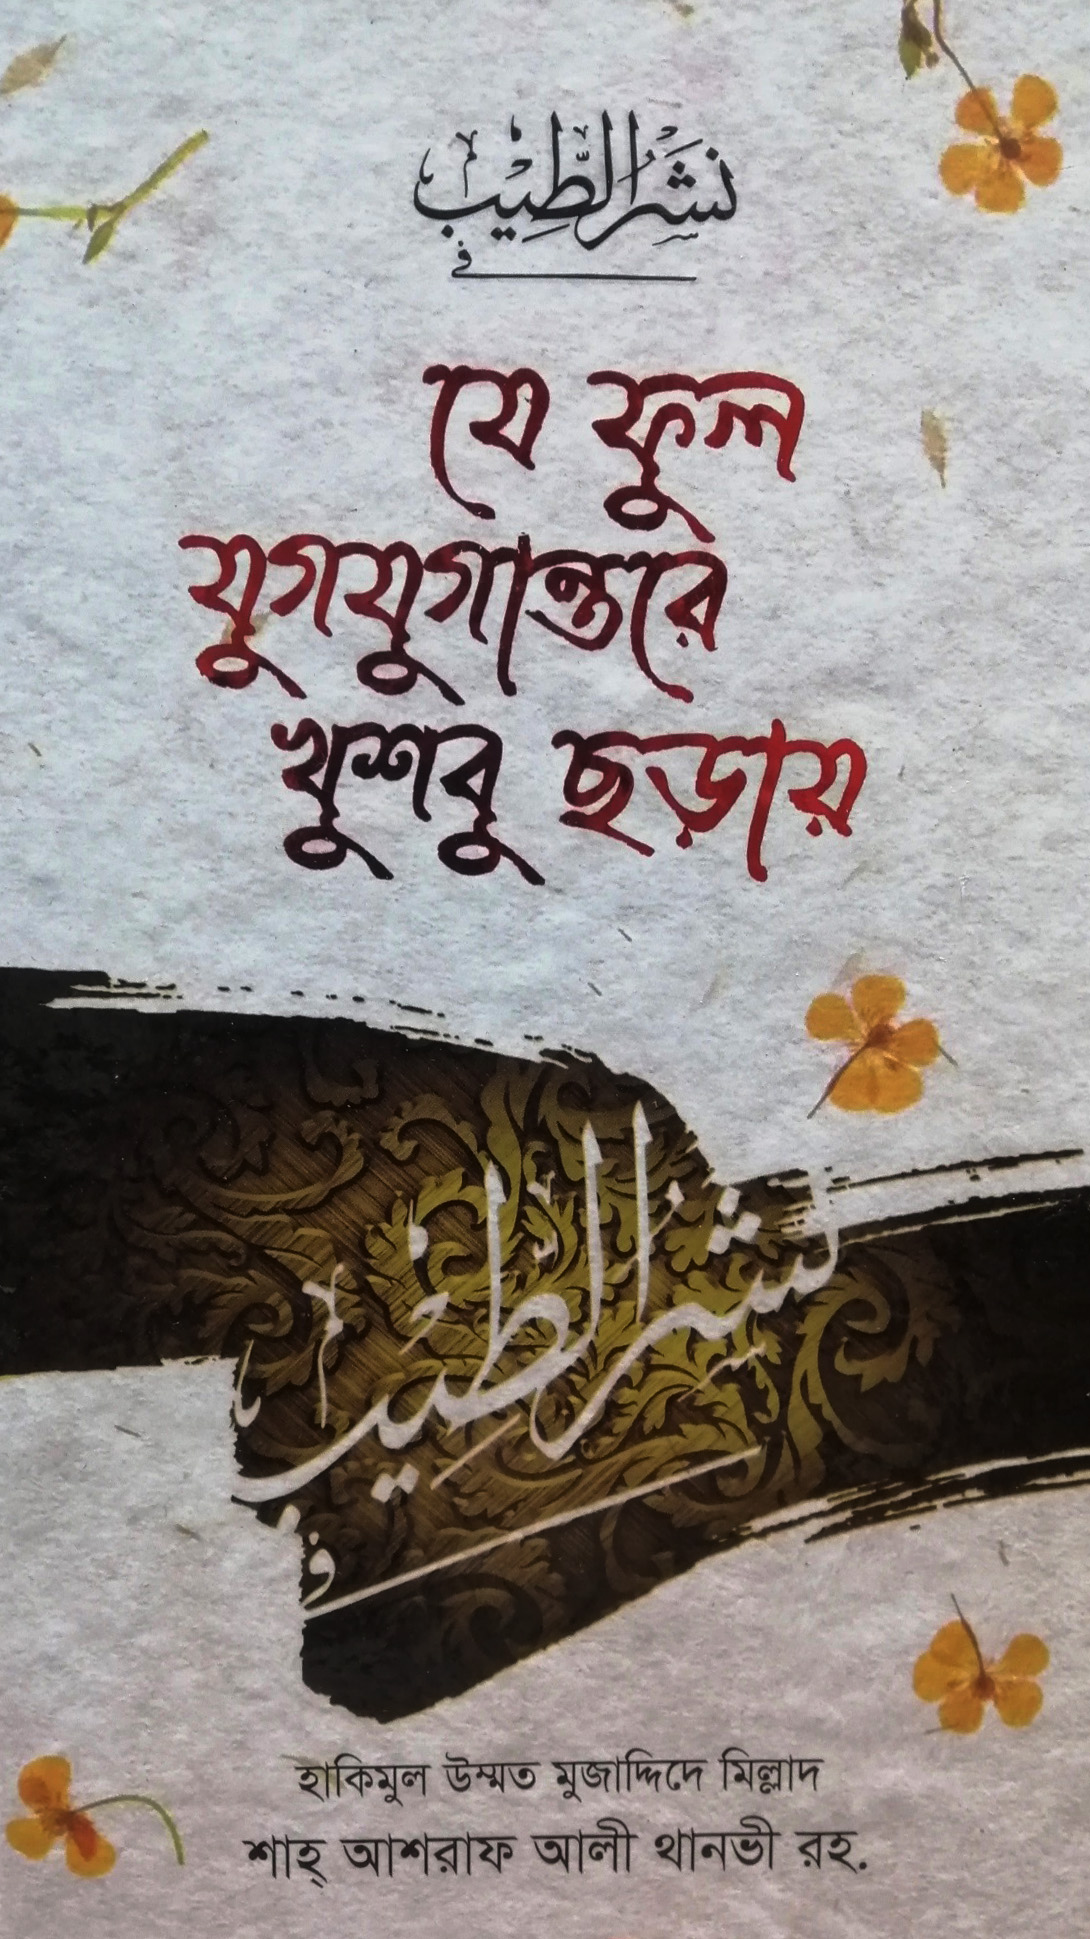 نَشْرُ الطِّيْب
في
যে ফুল
যুগযুগান্তরে
খুশবু ছড়ায়
نشر الطيب
في
হাকিমুল উম্মত মুজাদ্দিদে মিল্লাদ
শাহ্ আশরাফ আলী থানভী রহ.